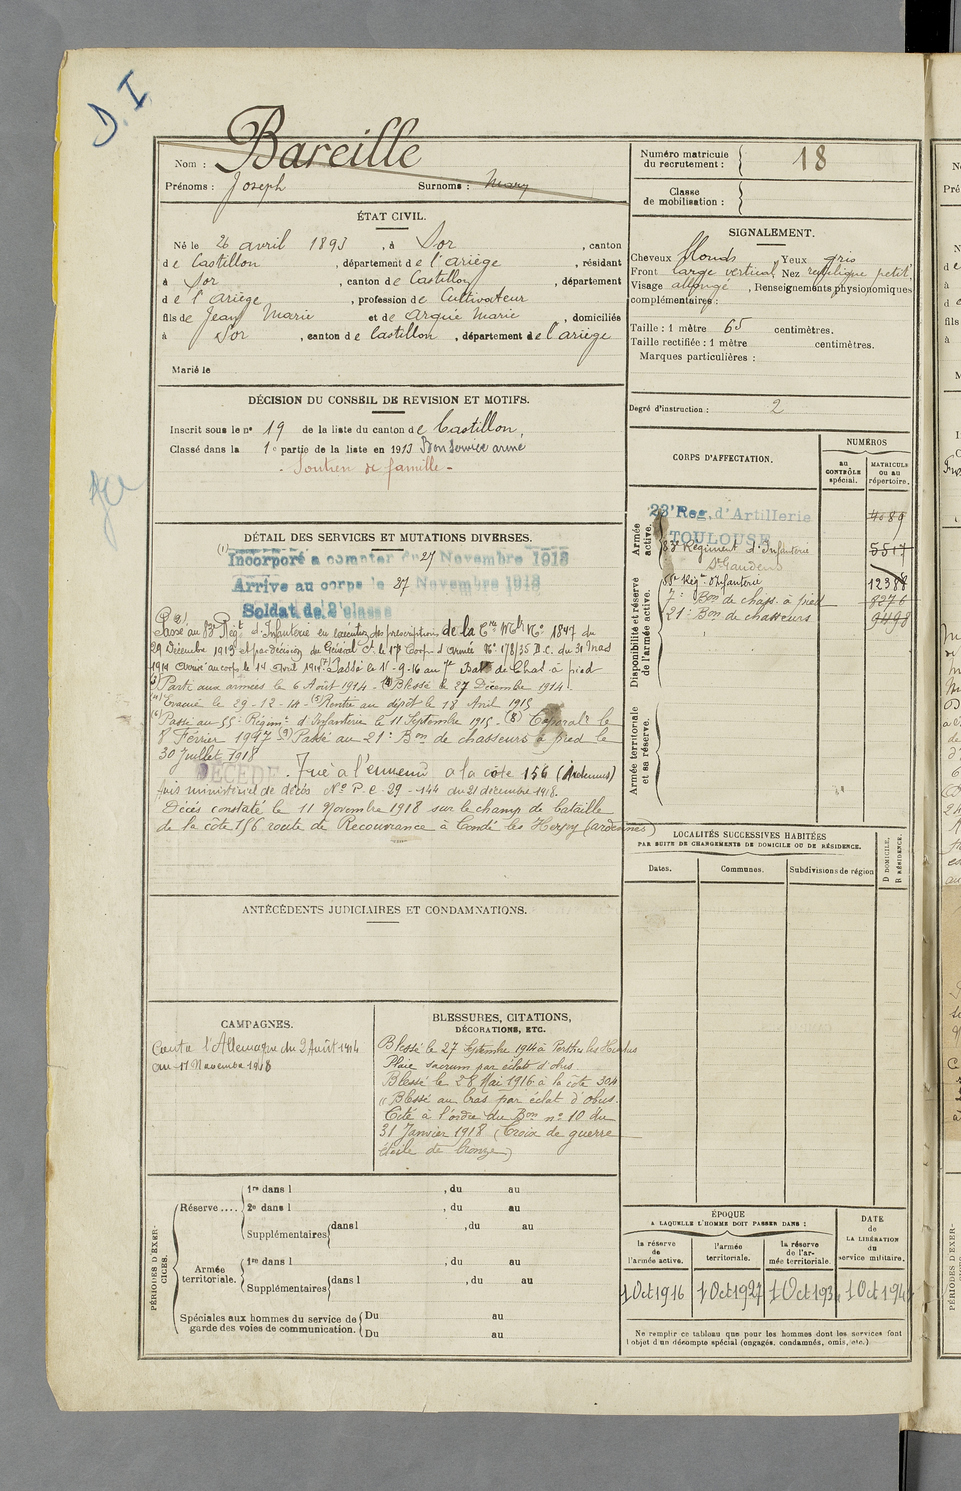 D. I
Nom : Bareille
Prénoms : Joseph Surnoms : Mary
Numéro matricule du recrutement : 18
Classe de mobilisation :
ÉTAT CIVIL.
Né le 26 avril 1893, à Sor, canton
de Castillon, département de l'ariège, résidant
à Sor, canton de Castillon, département
de l'ariège, profession de Cultivateur
fils de Jean Marie et de Arqué Marie, domiciliés
à Sor, canton de Castillon, département de l'ariège
Marié le
SIGNALEMENT.
Cheveux blonds, Yeux gris
Front large vertical, Nez rectiligne petit
Visage allongé, Renseignements physionomiques
complémentaires :
Taille : 1 mètre 65 centimètres.
Taille rectifiée : 1 mètre centimètres.
Marques particulières :
Degré d'instruction : 2
DÉCISION DU CONSEIL DE REVISION ET MOTIFS.
Inscrit sous le n° 19 de la liste du canton de Castillon,
Classé dans la 1e partie de la liste en 1913 Bon Service armé
- Soutien de famille -
CORPS D'AFFECTATION.
NUMÉROS
AU CONTRÔLE spécial.
MATRICULE ou au répertoire.
Armée active.
23e Reg. d'Artillerie
TOULOUSE
83e Régiment d'Infanterie 5517
St Gaudens
Disponibilité et réserve de l'armée active.
55e Régt d'Infanterie
7e Bon de chass. à pied 8276
21e Bon de chasseurs 9498
Armée territoriale et sa réserve.
DÉTAIL DES SERVICES ET MUTATIONS DIVERSES.
(1) Incorporé a compter du 27 Novembre 1913
Arrivé au corps le 27 Novembre 1913
Soldat de 2e classe
(2) Passé au 83e Régt d'Infanterie en exécution des prescriptions de la Cre Mlle No 1847 du
29 Décembre 1913 et par décision du Général Ct le 17e Corps d'Armée No 178/35 D.C. du 31 Mars
1914 Arrivé au corps le 14 Avril 1914 (7) Passé le 11-9-16 au 7e Batn de Chas. à pied
(3) Parti aux armées le 6 Août 1914 - (4) Blessé le 27 Décembre 1914.
(4) Evacué le 29-12-14 - (5) Rentré au dépôt le 18 Avril 1915
(6) Passé au 55e Régimt d'Infanterie le 11 Septembre 1915 - (8) Caporal le
8 Février 1917 (9) Passé au 21e Bon de chasseurs à pied le
30 juillet 1918
DÉCÉDÉ. Tué à l'ennemi a la côte 156 (Ardennes)
Avis ministériel de décès No P.C-29-144 du 21 décembre 1918.
Décès constaté le 11 Novembre 1918 sur le champ de bataille
de la côte 156 route de Recouvrance à Condé les Herpy (ardennes)
LOCALITÉS SUCCESSIVES HABITÉES
PAR SUITE DE CHANGEMENTS DE DOMICILE OU DE RÉSIDENCE.
Dates. Communes. Subdivisions de région D DOMICILE, R RÉSIDENCE.
ANTÉCÉDENTS JUDICIAIRES ET CONDAMNATIONS.
CAMPAGNES.
Contre l'Allemagne du 2 Août 1914
au 11 Novembre 1918
BLESSURES, CITATIONS,
DÉCORATIONS, ETC.
Blessé le 27 Septembre 1914 à Perthes les Hurlus
Plaie sacrum par éclats d'obus
Blessé le 28 Mai 1916 à la côte 304
"Blessé au bras par éclat d'obus.
Cité à l'ordre du Bon no 10 du
31 Janvier 1918 (Croix de guerre
étoile de bronze)
PÉRIODES D'EXERCICES.
Réserve....
1re dans l , du au
2e dans l , du au
Supplémentaires dans l , du au
Armée territoriale.
1re dans l , du au
Supplémentaires dans l , du au
Spéciales aux hommes du service de garde des voies de communication.
Du au
Du au
ÉPOQUE
A LAQUELLE L'HOMME DOIT PASSER DANS :
la réserve de l'armée active.
l'armée territoriale.
la réserve de l'armée territoriale.
DATE DE LA LIBÉRATION du service militaire.
1 Oct 1916 1 Oct 1927 1 Oct 193 1 Oct 194
Ne remplir ce tableau que pour les hommes dont les services font
l'objet d'un décompte spécial (engagés, condamnés, omis, etc.).